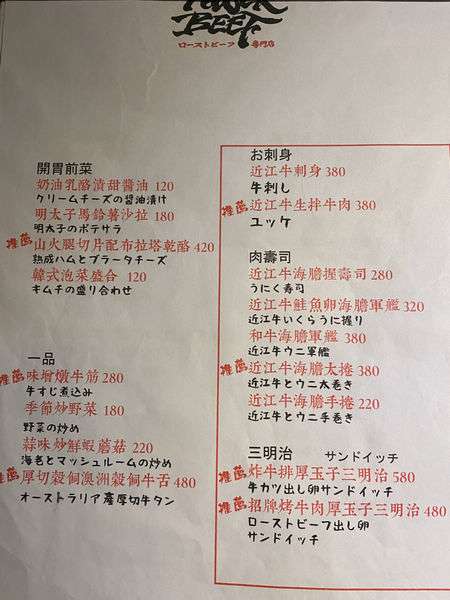 BEEF
ローストビーフ 專門店
開胃前菜
奶油乳酪漬甜醬油 120
クリームチーズの醤油漬け
明太子馬鈴薯沙拉 180
明太子のポテサラ
推薦 山火腿切片配布拉塔乾酪 420
熟成ハムとブラータチーズ
韓式泡菜盛合 120
キムチの盛り合わせ
一品
推薦 味增燉牛筋 280
牛すじ煮込み
季節炒野菜 180
野菜の炒め
蒜味炒鮮蝦蘑菇 220
海老とマッシュルームの炒め
推薦 厚切穀飼澳洲穀飼牛舌 480
オーストラリア産厚切牛タン
お刺身
近江牛刺身 380
牛刺し
推薦 近江牛生拌牛肉 380
ユッケ
肉壽司
近江牛海膽握壽司 280
うにく寿司
近江牛鮭魚卵海膽軍艦 320
近江牛いくらうに握り
和牛海膽軍艦 380
近江牛ウニ軍艦
推薦 近江牛海膽太捲 380
近江牛とウニ太巻き
近江牛海膽手捲 220
近江牛とウニ手巻き
三明治 サンドイッチ
推薦 炸牛排厚玉子三明治 580
牛カツ出し卵サンドイッチ
推薦 招牌烤牛肉厚玉子三明治 480
ローストビーフ出し卵
サンドイッチ